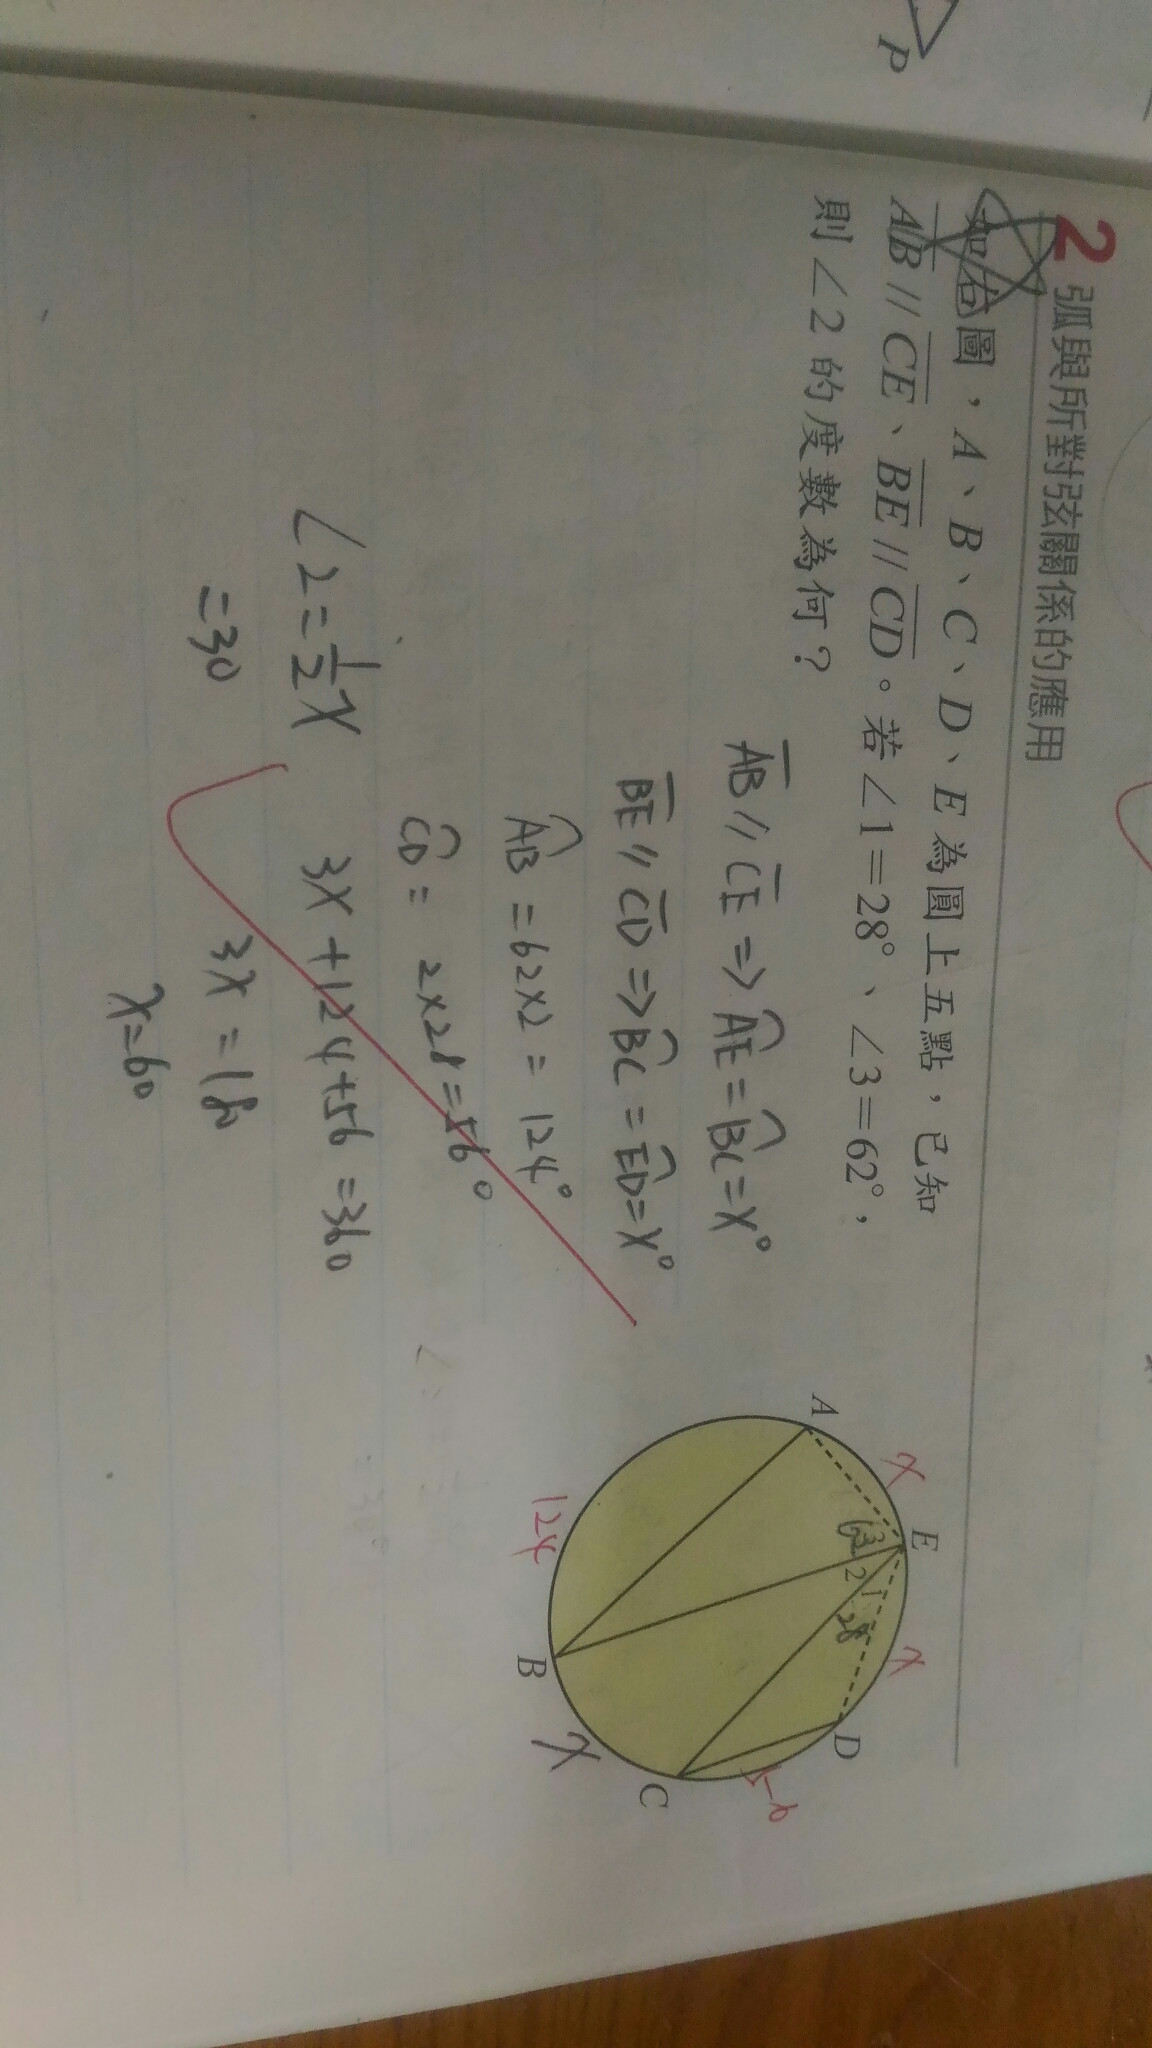 P
2 弧與所對弦關係的應用
如右圖，A、B、C、D、E為圓上五點，已知
AB // CE、BE // CD。若∠1=28°、∠3=62°，
則∠2的度數為何？
AB // CE => AE = BC = x°
BE // CD => BC = ED = x°
AB = 62×2 = 124°
CD = 2×28 = 56°
3x + 124 + 56 = 360
3x = 180
x = 60
∠2 = 1/2 x
= 30
A
x
E
3
62
2
1
28
x
D
56
C
x
B
124